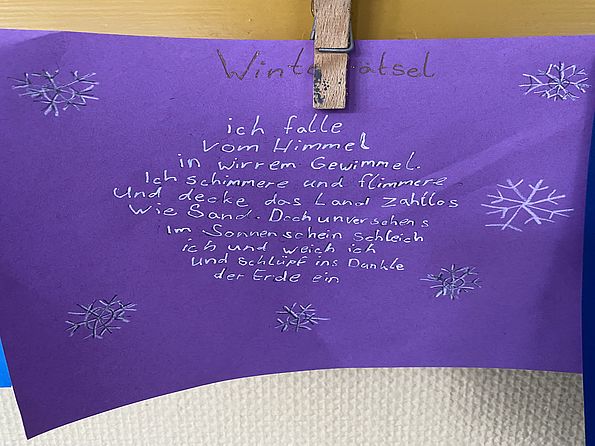 Winterrätsel
ich falle
vom Himmel
in wirrem Gewimmel.
Ich schimmere und flimmere
Und decke das Land zahllos
Wie Sand. Doch unversehens
Im Sonnenschein schleich
ich und weich ich
und schlüpf ins Dunkle
der Erde ein